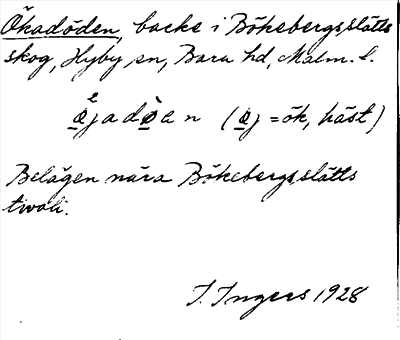 Ökadöden, backe i Bökebergsslätts
skog, Hyby sn, Bara hd, Malm. l.
øjadøen (øj = ök, häst)
Belägen nära Bökebergsslätts
tivoli.
I. Ingers 1928